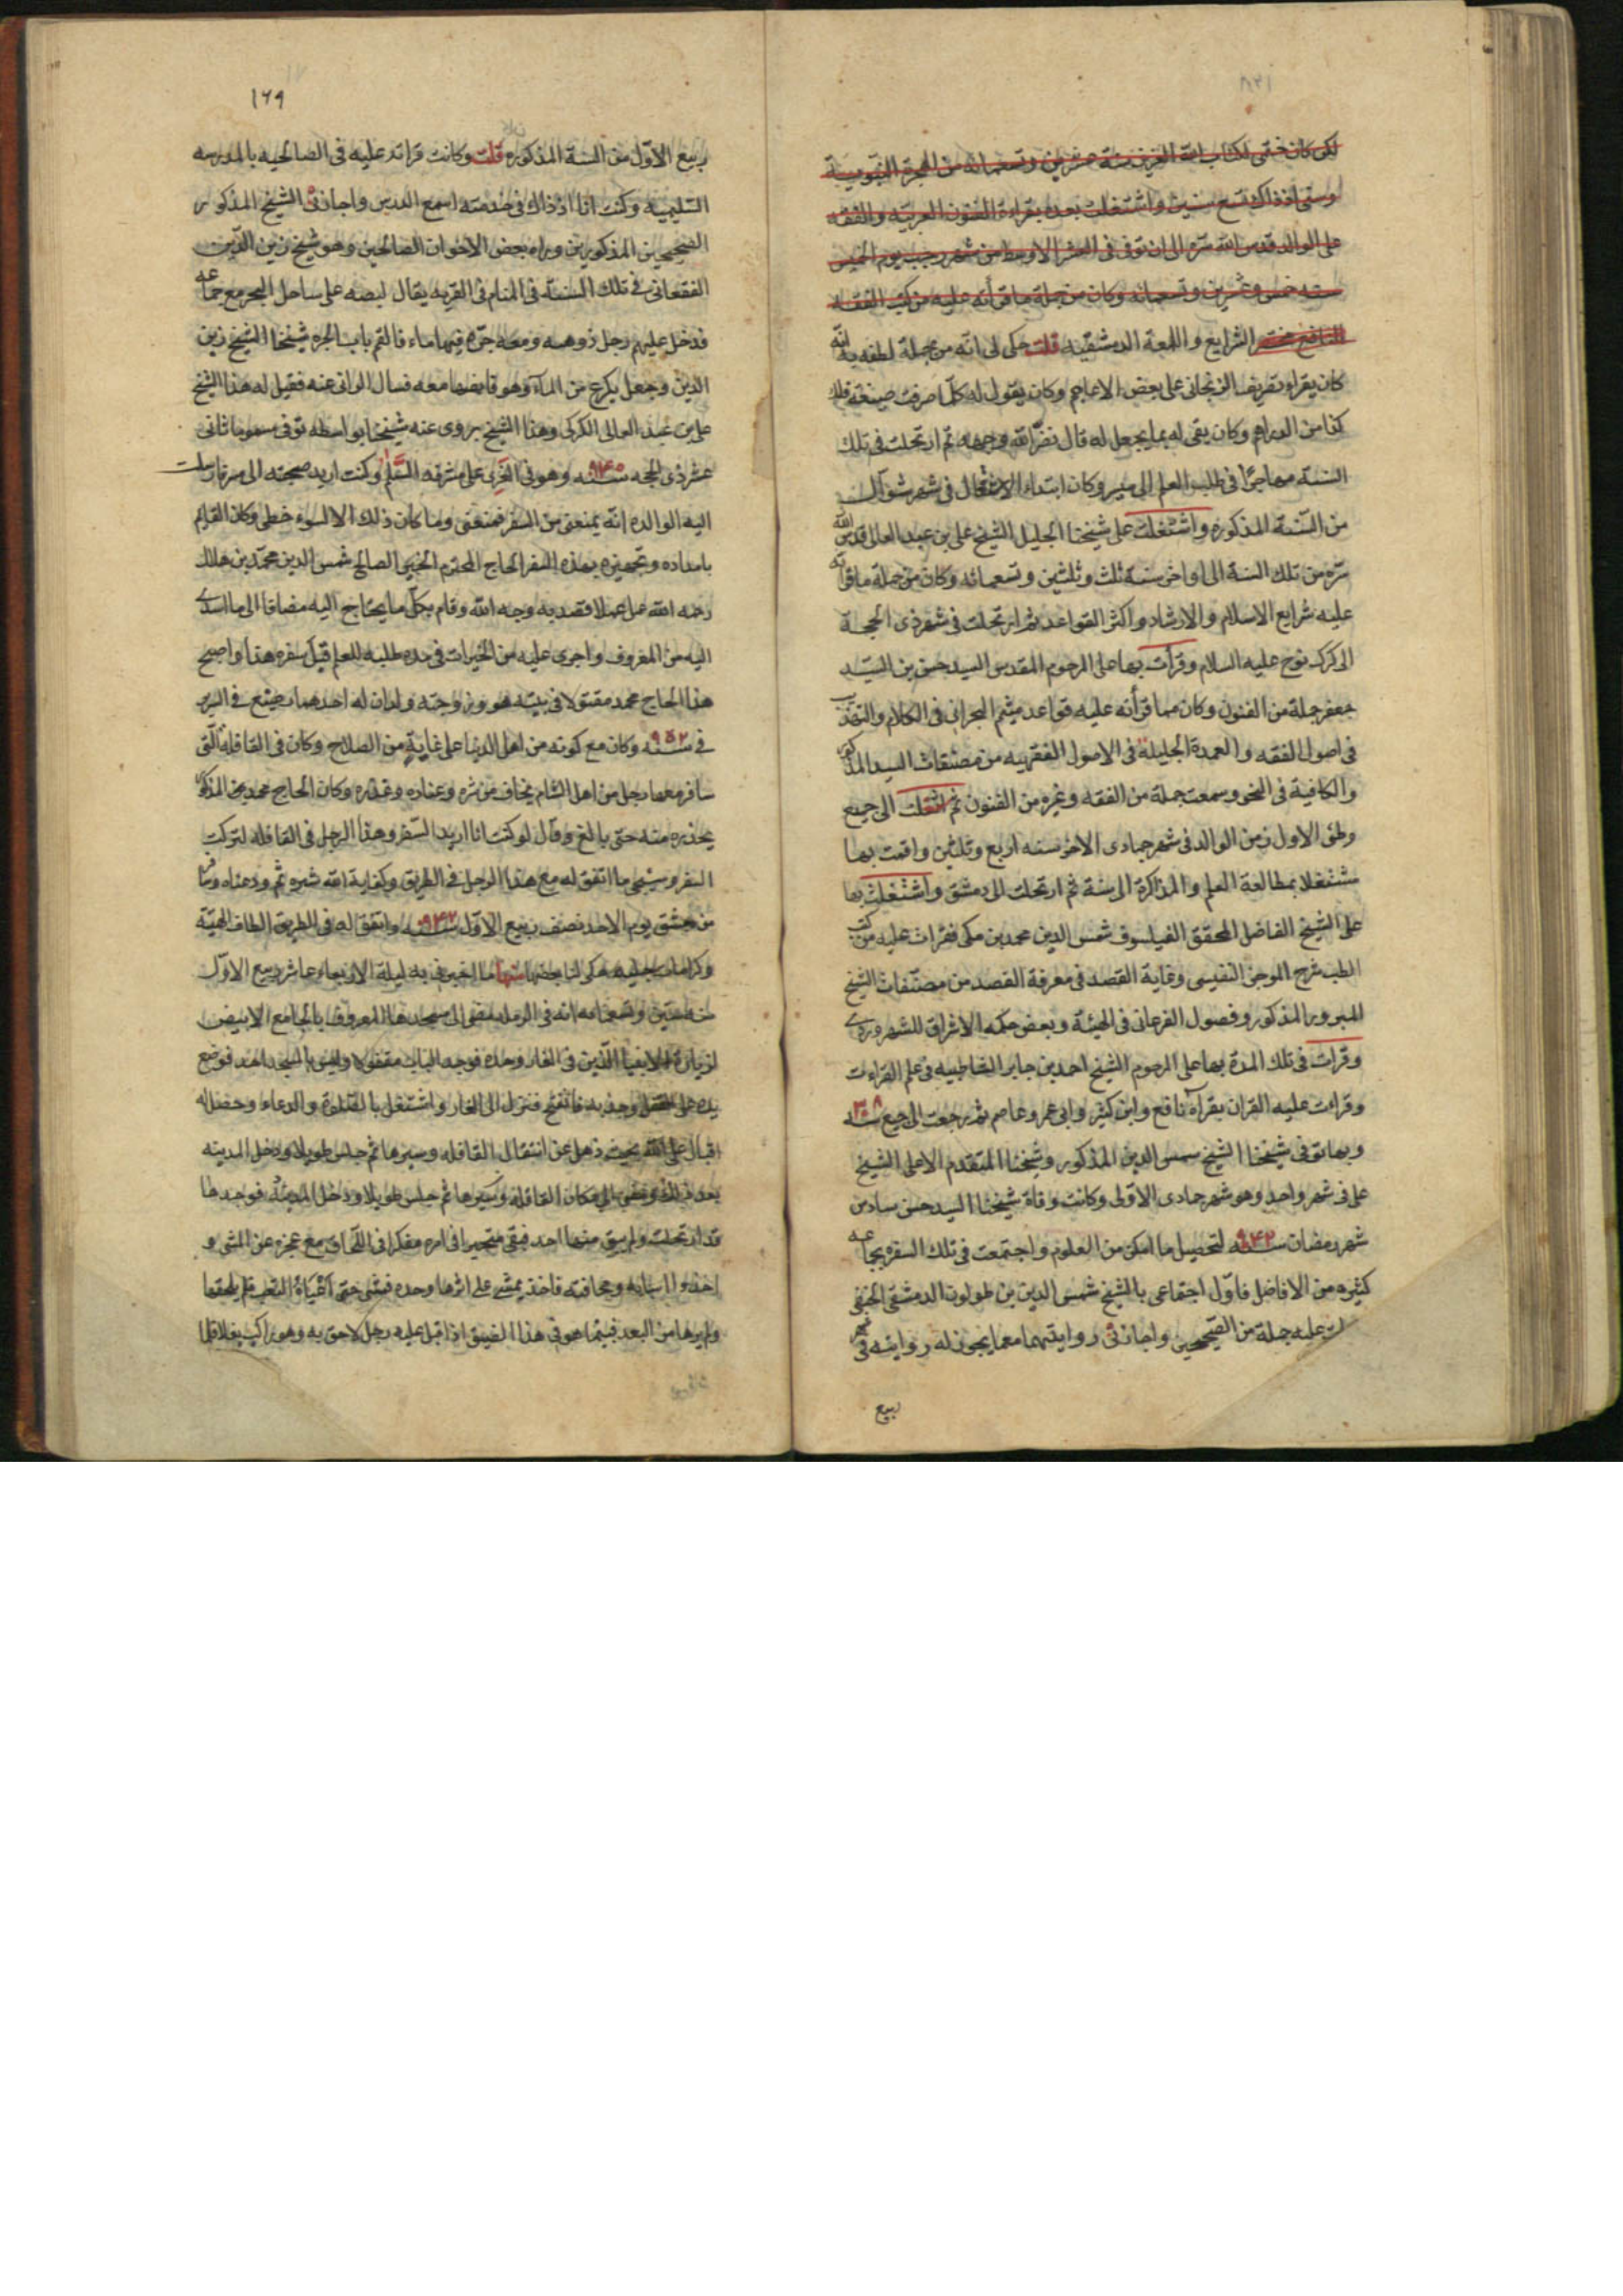 لكن كان ختمى لكتاب الله العزيز سنة عشرين وتسعمائه من الهجرة النبوية
وسنى اذ ذاك تسع سنين واشتغلت بعده بقراءة الفنون العربيه والفقه
على الوالد قدس الله سره الى ان توفى فى العشر الاوسط من شهر رجب يوم الخميس
سنه خمس وعشرين وتسعمائه وكان من جملة ما قرأته عليه من كتب الفقه
النافع مختصر الشرايع واللمعة الدمشقيه قلت حكى لى انه من جملة لطفه به انه
كان يقراء تصريف الزنجانى على بعض الاعاجم وكان يقول له كلّ ا صرفت صيغة فلك
كذا من الدراهم وكان يفى له بما يجعل له قال نضّر الله وجهه ثم ارتحلت فى تلك
السنة مهاجرًا فى طلب العلم الى ميس وكان ابتداء الانتقال فى شهر شوال
من السّنة المذكوره واشتغلت على شيخنا الجليل الشيخ على بن عبد العالى قدس الله
سّره من تلك السنة الى اواخر سنة ثلث وثلثين وتسعمائه وكان من جملة ما قرأته
عليه شرايع الاسلام والارشاد واكثر القواعد ثم ارتحلت فى شهر ذى الحجة
الى كرك نوح عليه السلام وقرأت بها على المرحوم المقدس السيد حسن بن السّيد
جعفر جملة من الفنون وكان مما قرأته عليه قواعد ميثم البحرانى فى الكلام والتهذيب
فى اصول الفقه والعمدة الجليلة فى الاصول الفقهيه من مصنفات السيد المذكور
والكافية فى النحو وسمعت جملة من الفقه وغيره من الفنون ثم انتقلت الى جبع
وطنى الاول زمن الوالد فى شهر جمادى الاخر سنه اربع وثلثين واقمت بها
مشتغلا بمطالعة العلم والمذاكرة الى سنة ثم ارتحلت الى دمشق واشتغلت بها
على الشيخ الفاضل المحقق الفيلسوف شمس الدين محمد بن مكى فقرات عليه من كتب
الطب شرح الموجز النفيسى وغاية القصد فى معرفة الفصد من مصنّفات الشيخ
المبرور المذكور وفصول الفرغانى فى الهيئة وبعض حكمه الاشراق للسهروردى
وقرات فى تلك المدة بها على المرحوم الشيخ احمد بن جابر الشاطبيه فى علم القراءت
وقراءت عليه القران بقراءة نافع وابن كثير وابى عمر وعاصم ثم رجعت الى جبع سنه ٩٣٨
وبها توفى شيخنا الشيخ شمس الدين المذكور وشيخنا المتقدم الاعلى الشيخ
على فى شهر واحد وهو شهر جمادى الاولى وكانت وفاة شيخنا السيد حسن سادس
شهر رمضان سنه ٩٤٢ لتحصيل ما امكن من العلوم واجتمعت فى تلك السفره بجماعه
كثيره من الافاضل فاوّل اجتماعى بالشيخ شمس الدين بن طولون الدمشقى الحنفى
عليه جملة من الصّحيحين واجازنى روايتهما مع ما يجوز له روايته فى شهر
ربيع
١٦٩
ربيع الاوّل من السنة المذكوره قلت وكانت قراته عليه فى الصالحيه بالمدرسه
السّليميه وكنت انا اذ ذاك فى خدمته اسمع الدرس واجازنى الشيخ المذكور
الصحيحين المذكورين وراه بعض الاخوان الصالحين وهو شيخ زين الدّين
الفقعانى فى تلك السنة فى المنام فى القريه يقال لبصه على ساحل البحر مع جماعه
فدخل عليهم رجل ذو هيبه ومعه جرّة فيها ماء فالتقم باب الجره شيخنا الشيخ زين
الدين وجعل يكرع من المآء وهو قابضها معه فسال الرائى عنه فقيل له هذا الشيخ
على بن عبد العالى الكركى وهذا الشيخ يروى عنه شيخنا بواسطه توفى مسموما ثانى
عشر ذى الحجه سنه ٩٤٥ وهو فى الغرى على مشرفه السّلم وكنت اريد صحبته الى مصر فارسلت
اليه الوالده انّه يمنعنى من السفر فمنعنى وما كان ذلك الا لسوء حظى وكان القائم
بامداده وتجهيزه بهذه السفر الحاج المحترم الخير الصالح شمس الدين محمّد بن هلال
رحمه الله عمل عملا قصد به وجه الله وقام بكلّ ما يحتاج اليه مضافا الى ما اسدى
اليه من المعروف واجرى عليه من الخيرات فى مده طلبه للعلم قبل سفره هذا واصبح
هذا الحاج محمد مقتولا فى بيته هو وزوجته ولدان له احدهما رضيع فى السرير
فى سنه ٩٥٢ وكان مع كونه من اهل الدنيا على غاية من الصلاح وكان فى القافلة الّتى
سافر معها رجل من اهل الشام يخاف من شره وعناده وغدره وكان الحاج محمد بن المذكور
يحذره منه حتى بالغ وقال لو كنت انا اريد السّفر وهذا الرجل فى القافله لتركت
السفر وسيجىء ما اتفق له مع هذا الرجل فى الطريق وكفاية الله شره ثم ودعناه وسافر
من دمشق يوم الاحد نصف ربيع الاوّل سنه ٩٤٢ واتفق له فى الطريق الطاف الهيّة
وكرامات جليله حكى لنا بعضها منها ما اخبرنى به ليلة الاربعاء عاشر ربيع الاوّل
سنه ستين وتسعمايه انه فى الرمله مضى الى مسجدها المعروف بالجامع الابيض
لزيارة الانبيا الذين فى الغار وحده فوجد الباب مقفولا وليس بالمسجد احد فوضع
يده على القفل وجذبه فانفتح فنزل الى الغار واشتغل بالصّلوة والدعاء وحصل له
اقبال على الله بحيث ذهل عن انتقال القافله وسيرها ثم جلس طويلا ودخل المدينه
بعد ذلك ومضى الى مكان القافلة وسيرها ثم جلس طويلا ودخل المدينة فوجدها
قد ارتحلت ولم يبق منها احد فبقى متحيرا فى امره مفكرا فى اللّحاق مع عجزه عن المشى و
اخذوا اسبابه ومحافته فاخذ يمشى على اثرها وحده فمشى حتى اعياه التعب فلم يلحقها
ولم يرها من البعد فبينما هو فى هذا الضيق اذ اقبل عليه رجل لاحق به وهو راكب بغلا قال